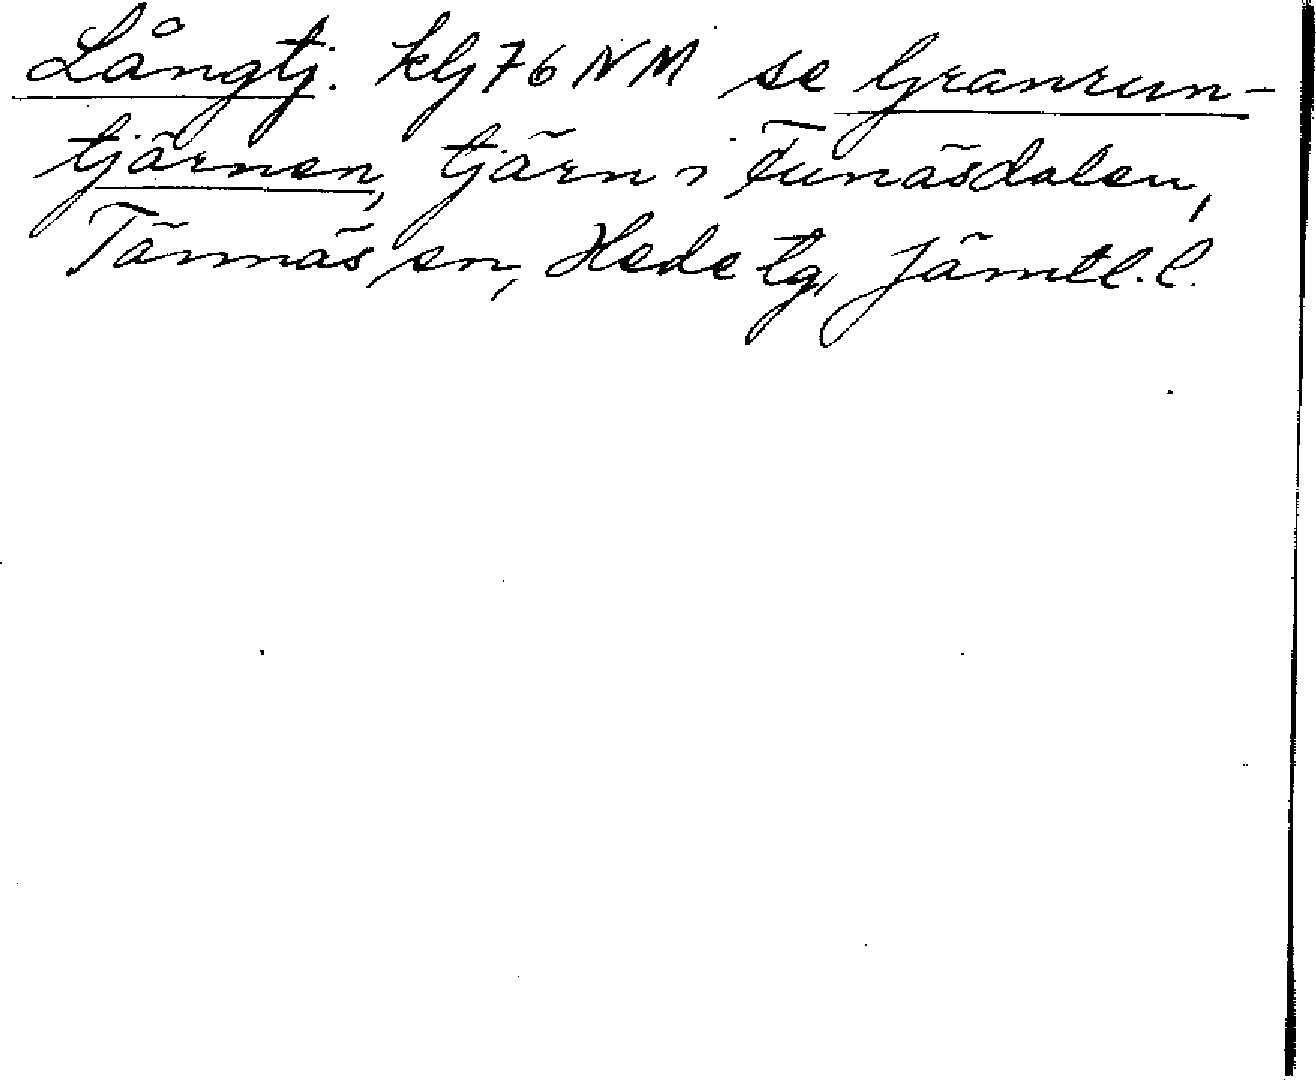 Långtj. klj 76 NM se Granrun-
tjärnen, tjärn i Funäsdalen,
Tännäs sn, Hede tg, Jämtl. l.